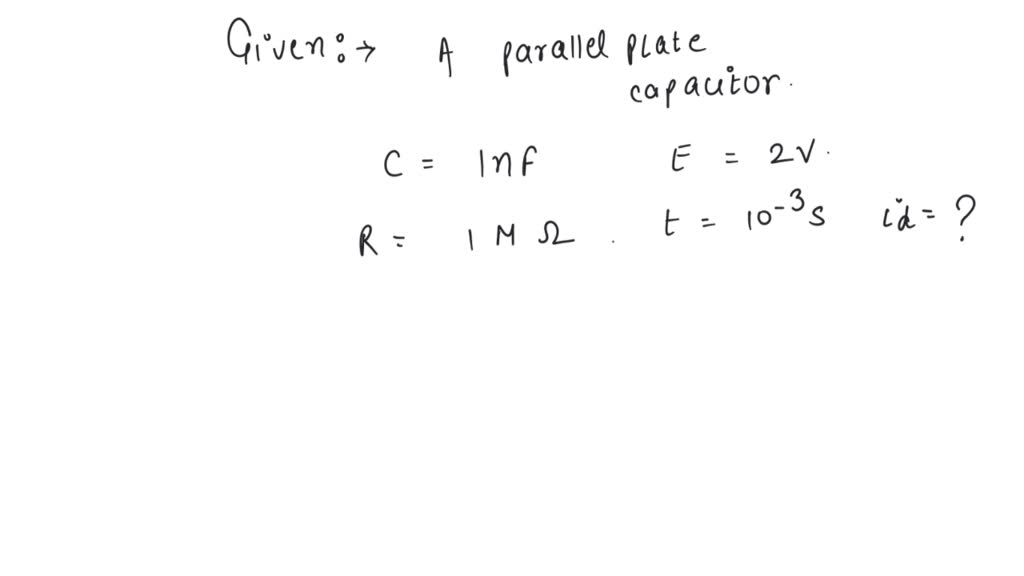 Given:→ A parallel plate
capacitor.
C = 1nF E = 2V.
R = 1 M Ω . t = 10⁻³s id = ?